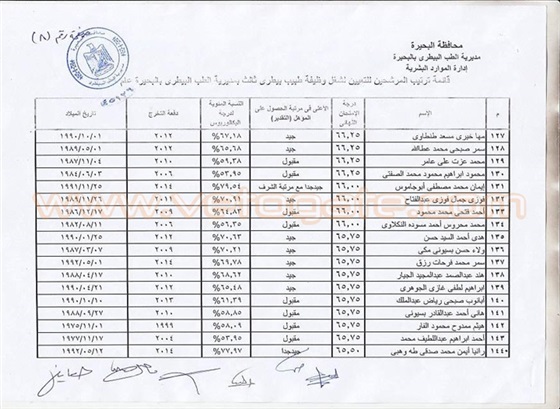 محافظة البحيرة
مديرية الطب البيطرى بالبحيرة
إدارة الموارد البشرية
قائمة ترتيب المرشحين للتعيين لشغل وظيفة طبيب بيطرى ثالث بمديرية الطب البيطرى بالبحيرة
م الإسم درجة الإمتحان النهائى الأعلى فى مرتبة الحصول على المؤهل (التقدير) النسبة المئوية لدرجة البكالوريوس دفعة التخرج تاريخ الميلاد
١٢٧ مها خيرى مسعد طنطاوى ٦٦,٢٥ جيد ٦٧,١٨% ٢٠١٢ ١٩٩٠/١٠/٠١
١٢٨ سمر صبحى محمد عطاالله ٦٦,٢٥ جيد ٦٥,٦٨% ٢٠١٢ ١٩٨٩/٠٥/٠١
١٢٩ محمد عزت على عامر ٦٦,٢٥ مقبول ٥٩,٣٨% ٢٠١٠ ١٩٨٧/١١/٠٤
١٣٠ محمود ابراهيم محمود محمد الصفتى ٦٦,٢٥ مقبول ٥٣,٩٥% ٢٠٠٦ ١٩٨٤/٠٦/٠٣
١٣١ إيمان محمد مصطفى أبوجاموس ٦٦,٠٠ جيدجدا مع مرتبة الشرف ٧٩,٥٤% ٢٠١٤ ١٩٩١/١١/٢٥
١٣٢ فوزى جمال فوزى عبدالفتاح ٦٦,٠٠ جيد
١٣٣ أحمد فتحى محمد محمود ٦٦,٠٠ مقبول
١٣٤ محمد محروس أحمد مسوده التكلاوى ٦٦,٠٠ مقبول ٥٦,٣٥% ٢٠٠٦ ١٩٨٢/٠٨/١١
١٣٥ هدى أحمد السيد حسن ٦٥,٧٥ جيد ٧٠,٦٣% ٢٠١٢ ١٩٩٠/٠١/٢٥
١٣٦ ولاء حسن بسيونى مكى ٦٥,٧٥ جيد ٧٠,٢١% ٢٠٠٩ ١٩٨٧/٠٣/٠٧
١٣٧ سمر محمد فرحات رزق ٦٥,٧٥ جيد ٦٩,٧٧% ٢٠١٤ ١٩٩٢/٠٥/٠١
١٣٨ هند عبدالصمد عبدالمجيد الجيار ٦٥,٧٥ جيد ٦٨,٦٢% ٢٠١٠ ١٩٨٨/٠٤/١٧
١٣٩ ابراهيم لطفى غازى الجوهرى ٦٥,٧٥ جيد ٦٥,٤٨% ٢٠١٢ ١٩٩٠/٠٤/٢١
١٤٠ أبانوب صبحى رياض عبدالملك ٦٥,٧٥ مقبول ٦١,٣٩% ٢٠١٣ ١٩٩٠/١٠/١٠
١٤١ هانى أحمد عبدالقادر بسيونى ٦٥,٧٥ مقبول ٥٨,٨٥% ٢٠١٠ ١٩٨٨/٠٩/٢٧
١٤٢ هيثم ممدوح محمود الفار ٦٥,٧٥ مقبول ٥٨,٠٩% ١٩٩٩ ١٩٧٥/١١/٠١
١٤٣ أحمد ابراهيم عبداللطيف محمد ٦٥,٧٥ مقبول ٥٣,٩٥% ٢٠٠٤ ١٩٧٧/١١/٠١
١٤٤ رانيا أيمن محمد صدقى طه وهبى ٦٥,٥٠ جيدجدا ٧٧,٩٧% ٢٠١٤ ١٩٩٢/٠٥/١٢